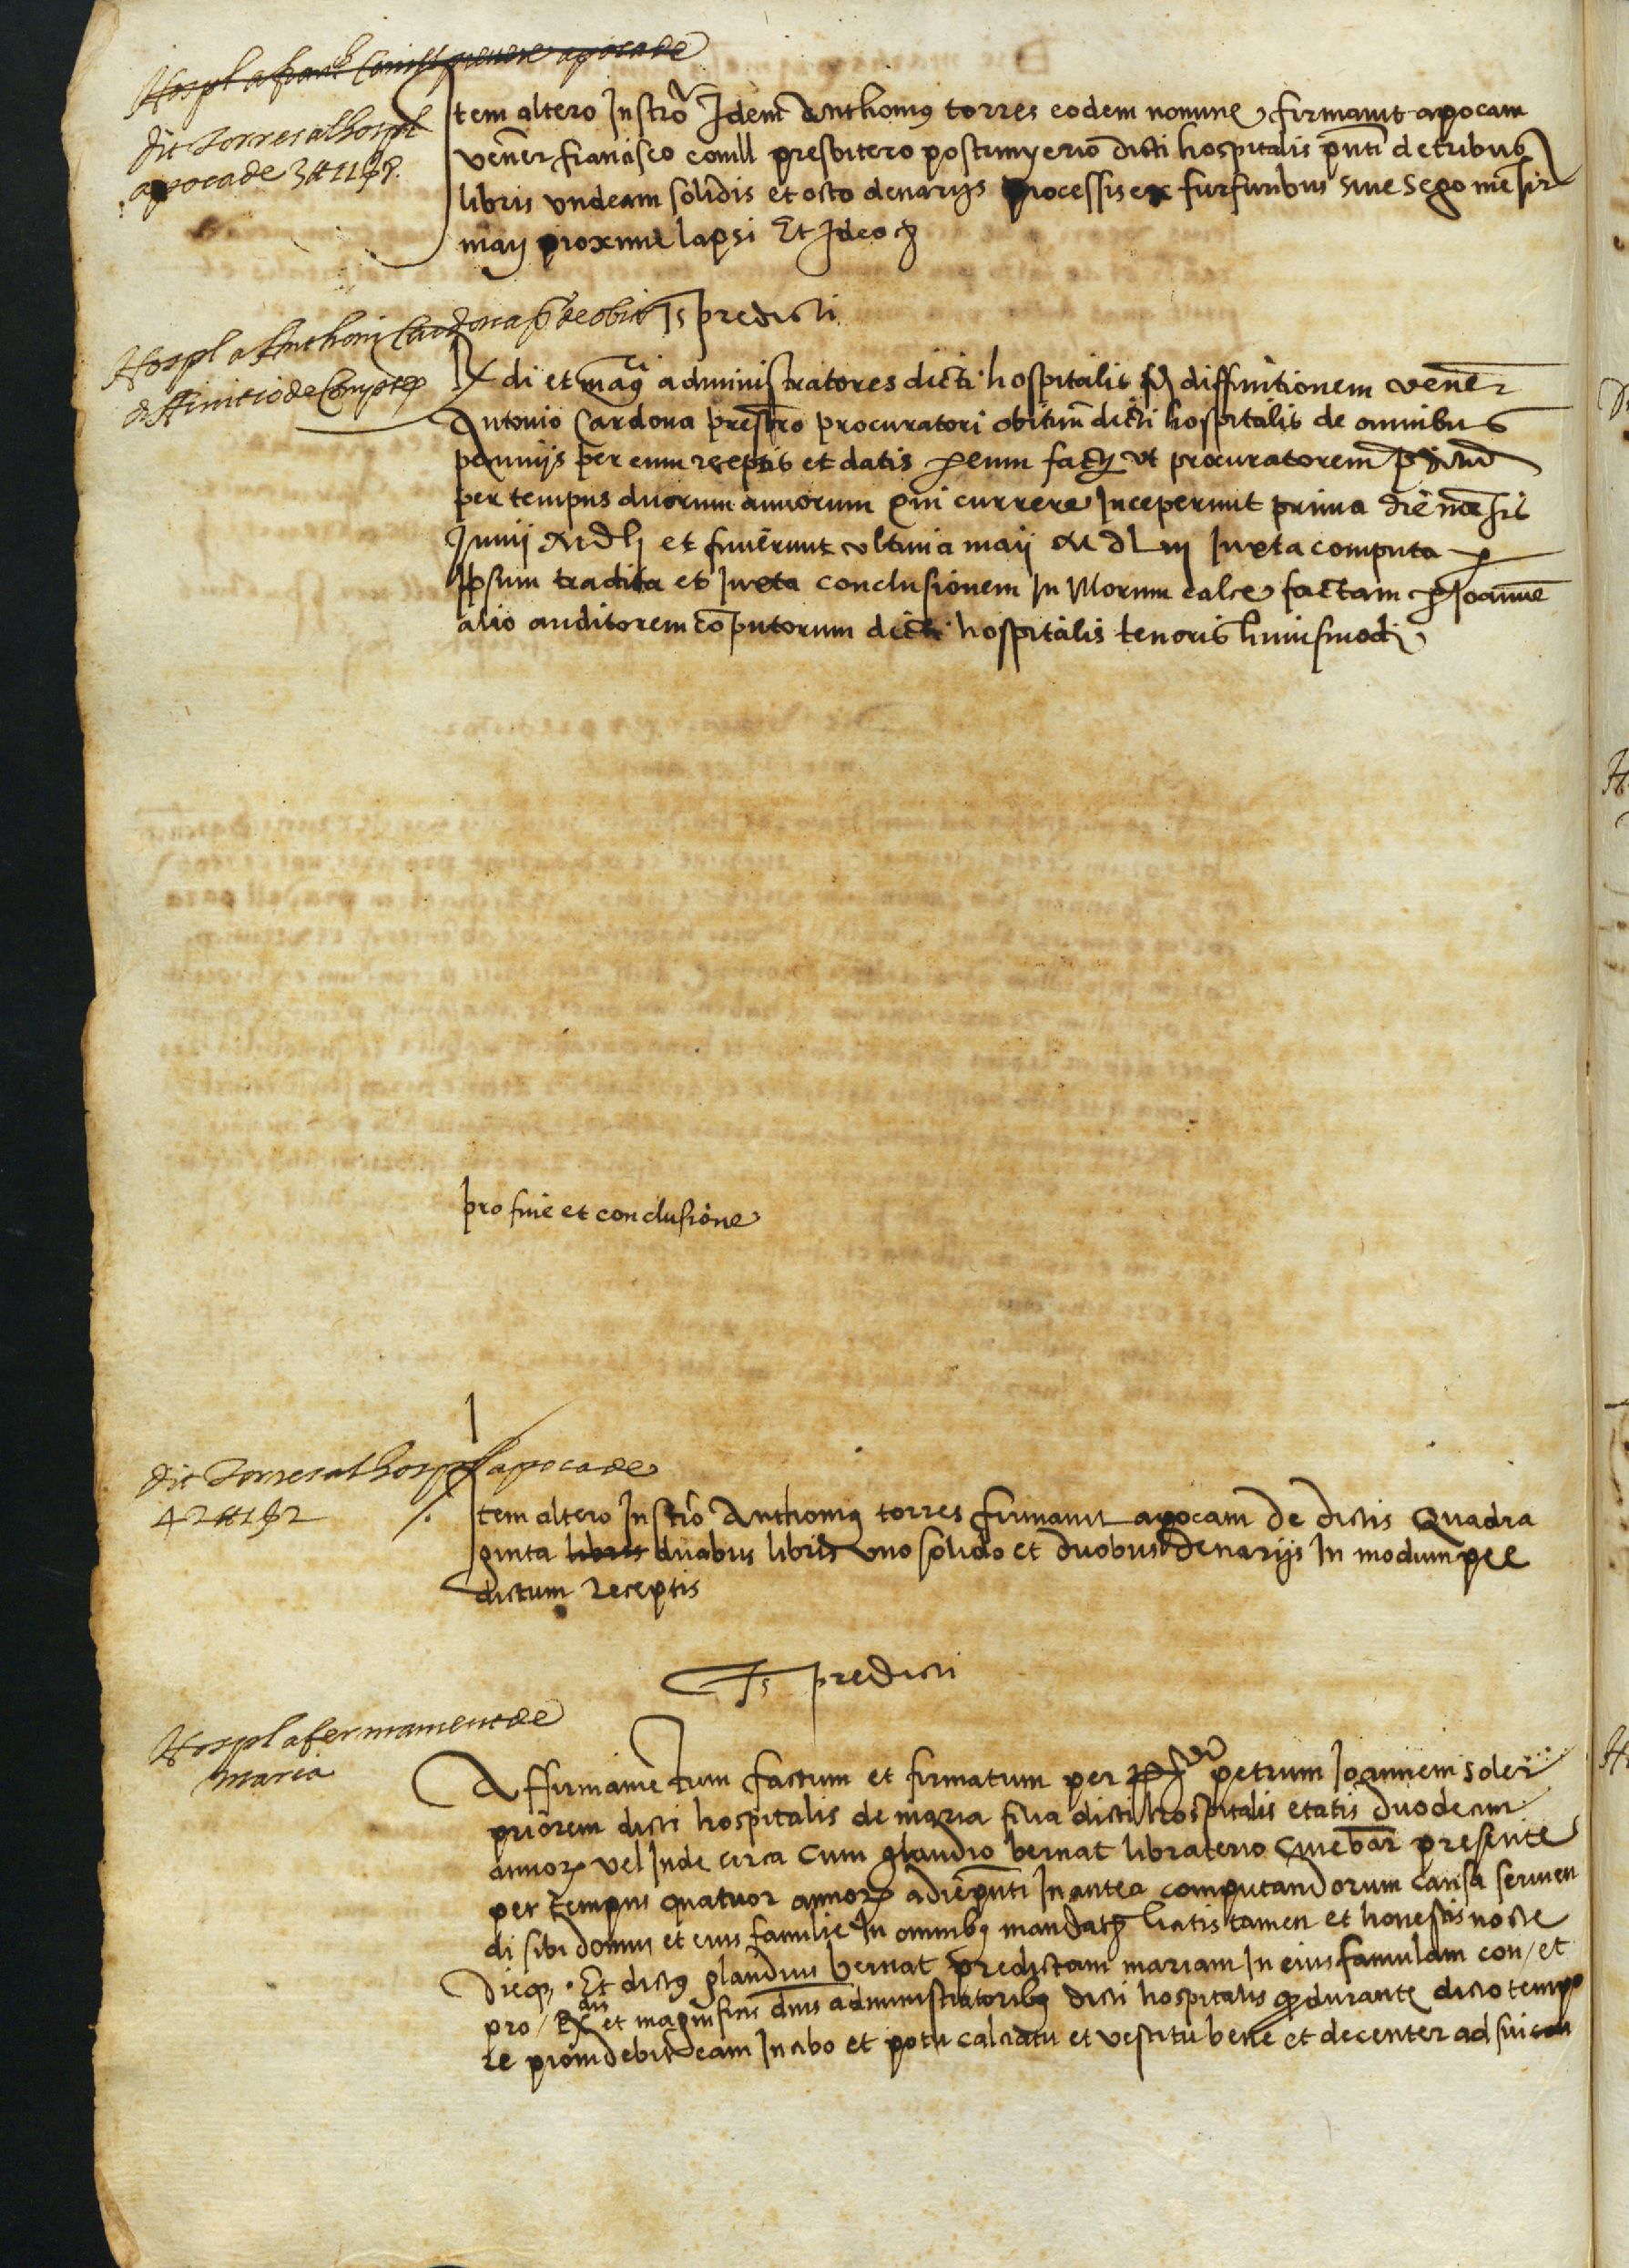 Hospl a franch Conill prevere apoca de
dit Torres al hospl
apoca de 3 ll 11 s 8.
Item altero Instro Idem Anthonius torres eodem nomine firmavit apocam
vener francisco conill presbitero dicti hospitalis pnti de tribus
libris undecim solidis et octo denarijs processis ex furfuribus sive Sego mensis
maij proxime lapsi Et Ideo &
Hospl a Anthoni Cardona p de obits
diffinitio de Comptes
Ts predicti
Rdi et magci administratores dicti hospitalis diffinitionem vener
Antonio Cardona presbro procuratori obituum dicti hospitalis de omnibus
pecunijs per eum receptis et datis per eum factis ut procuratorem
per tempus duorum annorum qui currere Inceperunt prima die mensis
Junij M d lj et finierunt ultima maij M d L iij Juxta computa per
Ipsum tradita et Juxta conclusionem In illorum calce factam per Joannem
alio auditorem computorum dicti hospitalis tenoris huiusmodi
pro fine et conclusione
dit Torres al hospl apoca de
42 ll 1 s 2
Item altero Instro Anthonius torres firmavit apocam de dictis Quadra
ginta libris duabus libris uno solido et duobus denarijs In modum pre
dictum receptis
Ts predicti
Hospl afermament de
maria
Affirmamentum factum et firmatum per petrum Joannem soler
priorem dicti hospitalis de maria filia dicti hospitalis etatis duodecim
annor vel Inde circa Cum glaudio bernat libraterio Cive bar presente
per tempus quatuor annor a die pnti In antea computandorum Causa servien
di sibi domui et eius familie In omnibus mandatis licitis tamen et honestis nocte
dieq. Et dictus glaudius bernat predictam mariam In eius famulam con / et
pro / Rdis et magnificis dnis administratoribus dicti hospitalis durante dicto tempo
re providebit eam In cibo et potu calciatu et vestitu bene et decenter ad sui con